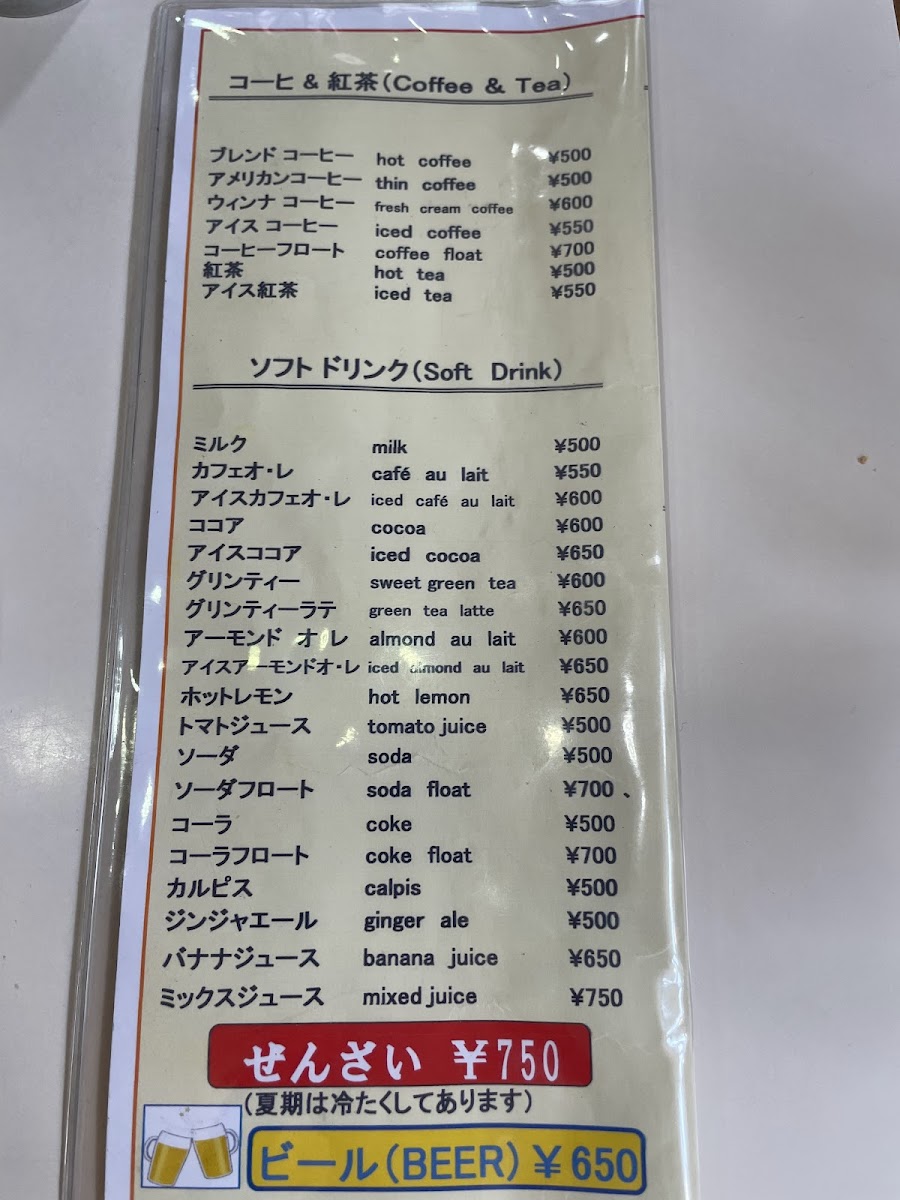 コーヒ & 紅茶(Coffee & Tea)
ブレンド コーヒー hot coffee ¥500
アメリカンコーヒー thin coffee ¥500
ウィンナ コーヒー fresh cream coffee ¥600
アイス コーヒー iced coffee ¥550
コーヒーフロート coffee float ¥700
紅茶 hot tea ¥500
アイス紅茶 iced tea ¥550
ソフト ドリンク(Soft Drink)
ミルク milk ¥500
カフェオ・レ café au lait ¥550
アイスカフェオ・レ iced café au lait ¥600
ココア cocoa ¥600
アイスココア iced cocoa ¥650
グリンティー sweet green tea ¥600
グリンティーラテ green tea latte ¥650
アーモンド オ レ almond au lait ¥600
アイスアーモンドオ・レ iced almond au lait ¥650
ホットレモン hot lemon ¥650
トマトジュース tomato juice ¥500
ソーダ soda ¥500
ソーダフロート soda float ¥700 、
コーラ coke ¥500
コーラフロート coke float ¥700
カルピス calpis ¥500
ジンジャエール ginger ale ¥500
バナナジュース banana juice ¥650
ミックスジュース mixed juice ¥750
ぜんざい ¥750
(夏期は冷たくしてあります)
ビール(BEER) ¥650